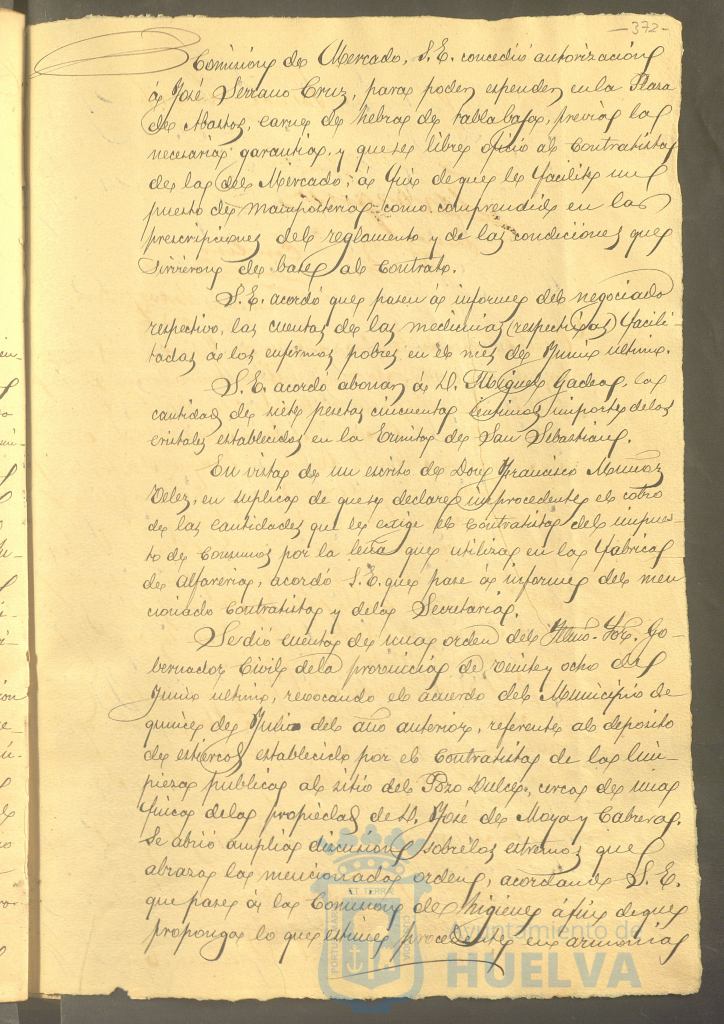 -372-
Comision de Mercado, S.E. concedió autorizacion
á José Serrano Cruz, para poder espender en la Plaza
de Abastos, carne de hebra de tabla baja, previas las
necesarias garantias, y que se libre oficio al Contratista
de la del Mercado, á fin de que le facilite un
puesto de mamposteria como comprendido en las
prescripciones del reglamento y de las condiciones que
sirvieron de base al contrato.
S.E. acordó que pasen á informe del negociado
respectivo, las cuentas de las medicinas (respectivas) facili-
tadas á los enfermos pobres en el mes de Junio ultimo.
S.E. acordo abonar á D. Miguel Gadea, la
cantidad de siete pesetas cincuenta centimos importe de los
cristales establecidos en la Ermita de San Sebastian.
En vista de un escrito de Don Francisco Muñoz
Velez, en suplica de que se declare improcedente el cobro
de las cantidades que le exige el Contratista del impues-
to de Consumos por la leña que utiliza en las fabricas
de Alfareria, acordó S.E. que pase á informe del men
cionado Contratista y de la Secretaria.
Se dió cuenta de una orden del Iltmo. Sor. Go-
bernador Civil de la provincia de veinte y ocho de
Junio ultimo, revocando el acuerdo del Municipio de
quince de Julio del año anterior, referente al deposito
de estiercol establecido por el Contratista de la lim-
pieza publica al sitio del Pozo Dulce, cerca de una
finca de la propiedad de D. José de Moya y Cabrera.
Se abrió amplia discusion sobre los estremos que
abraza la mencionada orden, acordando S.E.
que pase á la Comision de higiene á fin de que
proponga lo que estime procedente en armonia
Ayuntamiento de
HUELVA